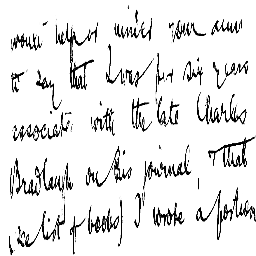 would help or hinder your aims
to say that I was for six years
associate with the late Charles
Bradlaugh on his journal, & that
list of books) I wrote a portion